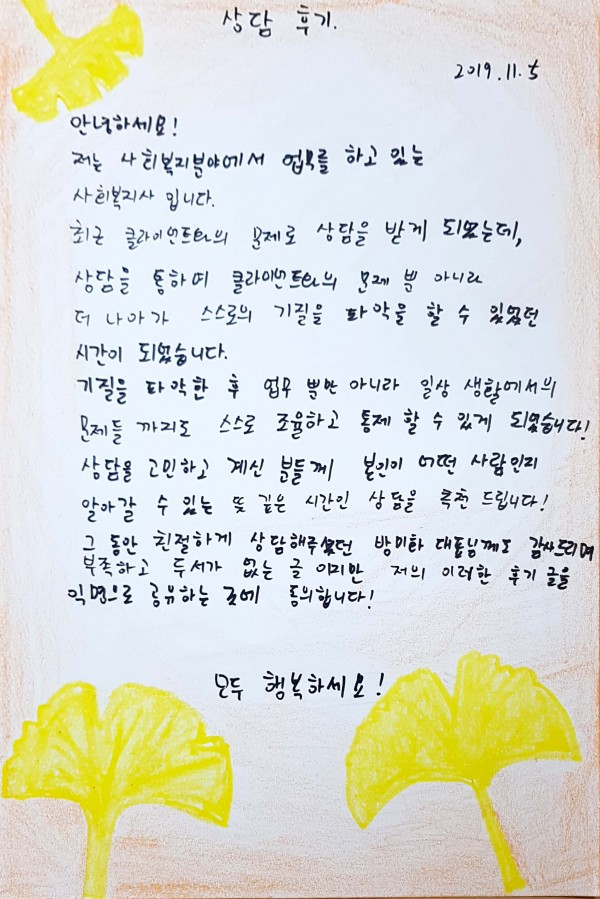 상담 후기.
2019.11.5
안녕하세요!
저는 사회복지분야에서 업무를 하고 있는
사회복지사 입니다.
최근 클라이언트의 문제로 상담을 받게 되었는데,
상담을 통하여 클라이언트의 문제 뿐 아니라
더 나아가 스스로의 기질을 파악을 할 수 있었던
시간이 되었습니다.
기질을 파악한 후 업무 뿐만 아니라 일상 생활에서의
문제들 까지도 스스로 조율하고 통제 할 수 있게 되었습니다!
상담을 고민하고 계신 분들께 본인이 어떤 사람인지
알아갈 수 있는 뜻 깊은 시간인 상담을 추천 드립니다!
그 동안 친절하게 상담해주셨던 방미화 대표님께도 감사드리며
부족하고 두서가 없는 글 이지만 저의 이러한 후기 글을
익명으로 공유하는 것에 동의합니다!
모두 행복하세요!